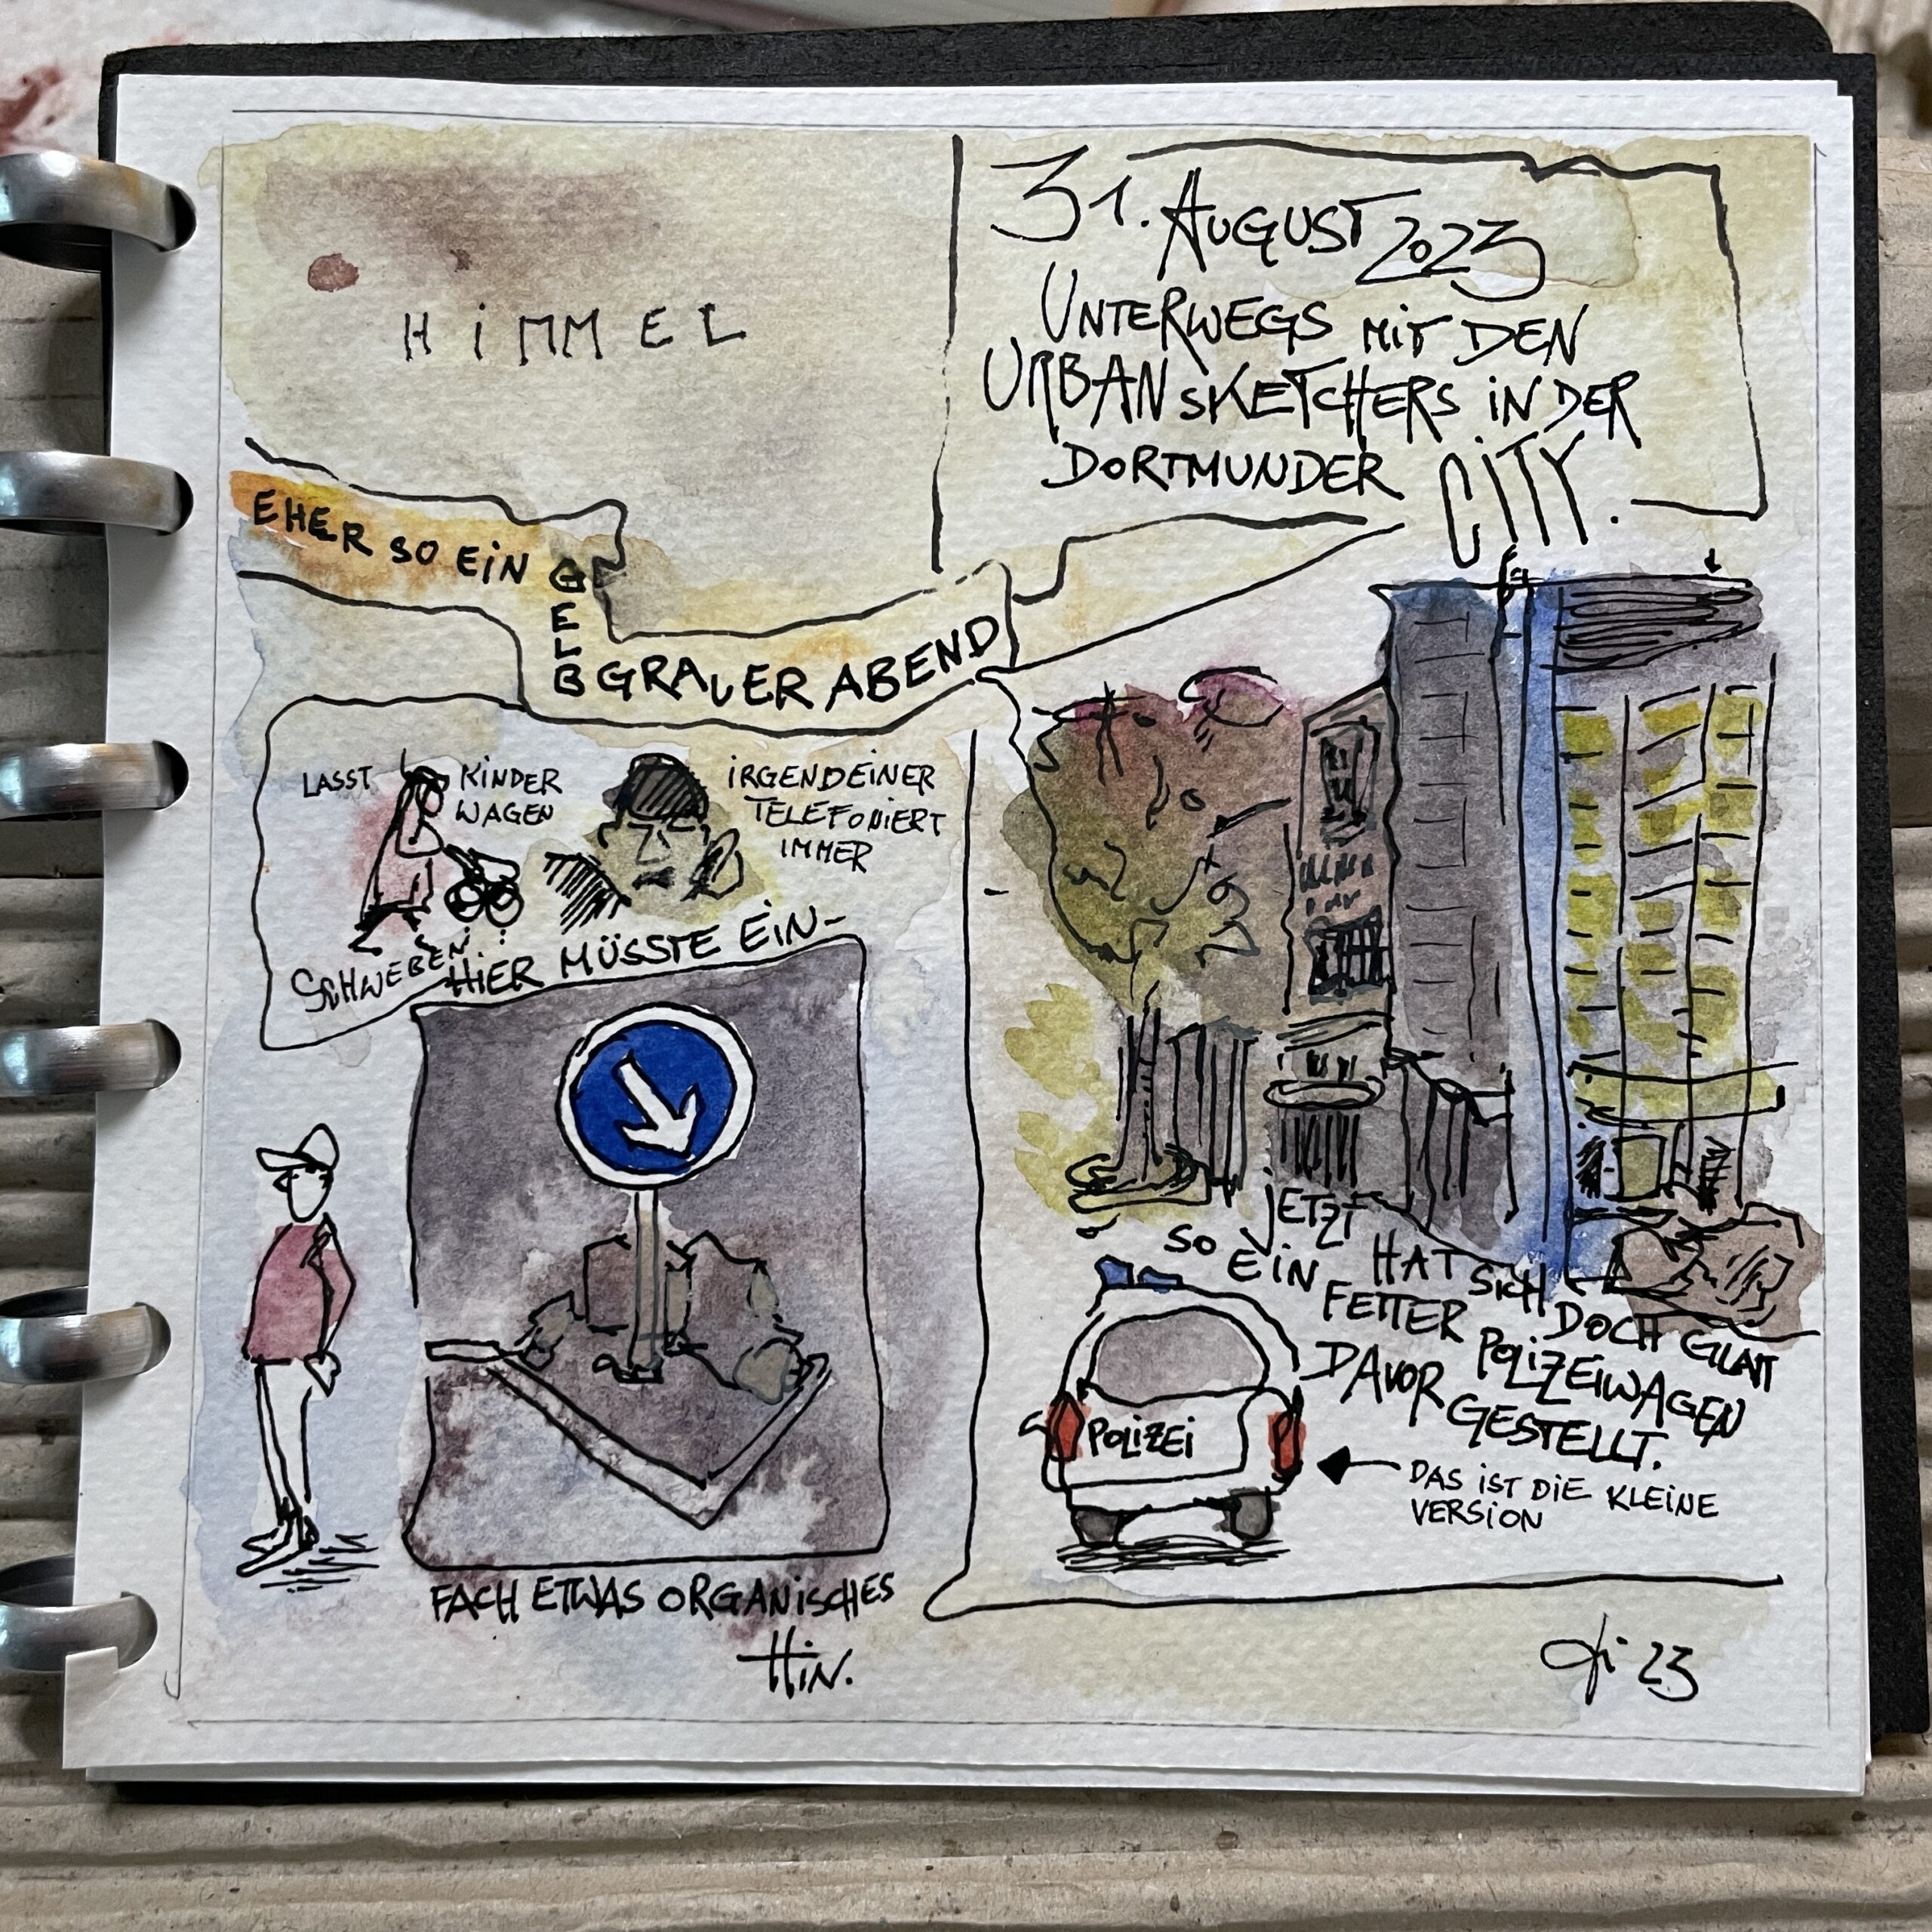 HiMMEL
31. AUGUST 2023
UNTERWEGS MiT DEN
URBAN SKETCHERS iN DER
DORTMUNDER CiTY.
EHER SO EiN
GELB
GRAUER ABEND
LASST KiNDER
WAGEN
SCHWEBEN
iRGENDEiNER
TELEFONiERT
IMMER
HiER MÜSSTE EiN-
FACH ETWAS ORGANiSCHES
HiN.
jETZT HAT SiCH DOCH GLATT
SO EiN FETTER POLiZEiWAGEN
DAVOR GESTELLT.
POLiZEi
DAS iST DiE KLEiNE
VERSiON
23